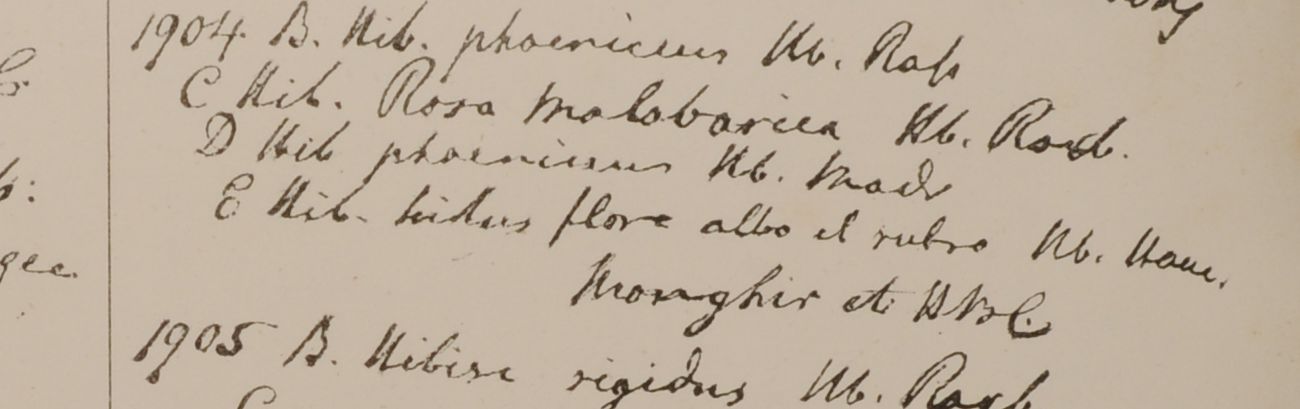 1904 B. Hib. phoenicius Hb. Roxb
C Hib. Rosa malabarica Hb. Roxb.
D Hib phoenicius Hb. Madr
E Hib. hirtus flore albo et rubro Hb. Ham.
Monghir et HBC.
1905 B. Hibisc rigidus Hb. Roxb